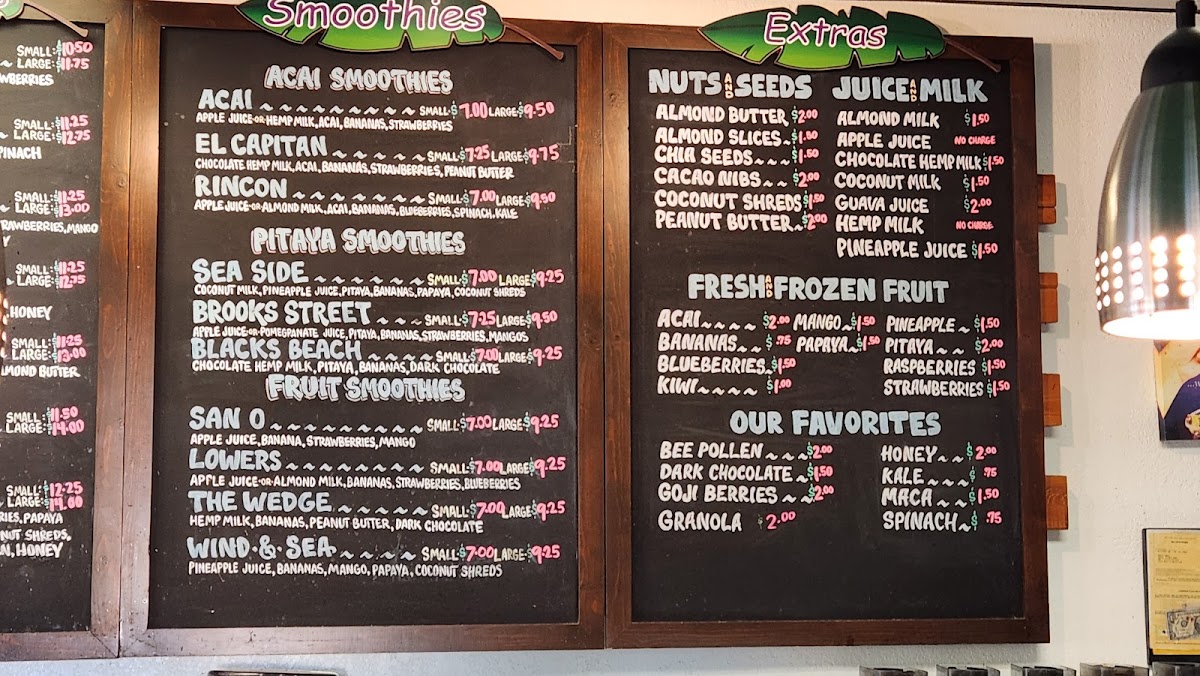 S
SMALL: $10.50
~ LARGE: $11.75
WBERRIES
SMALL: $11.25
~ LARGE: $12.75
PINACH
SMALL: $11.25
~ LARGE: $13.00
RAWBERRIES, MANGO
Y
SMALL: $11.25
~ LARGE: $12.75
, HONEY
SMALL: $11.25
~ LARGE: $13.00
LMOND BUTTER
SMALL: $11.50
LARGE: $14.00
SMALL: $12.25
~ LARGE: $14.00
RIES, PAPAYA
NUT SHREDS,
N, HONEY
Smoothies
ACAI SMOOTHIES
ACAI ~~~~~~~~~~ SMALL: $7.00 LARGE: $9.50
APPLE JUICE -OR- HEMP MILK, ACAI, BANANAS, STRAWBERRIES
EL CAPITAN ~~~~~~ SMALL: $7.25 LARGE: $9.75
CHOCOLATE HEMP MILK, ACAI, BANANAS, STRAWBERRIES, PEANUT BUTTER
RINCON ~~~~~~~~ SMALL: $7.00 LARGE: $9.50
APPLE JUICE -OR- ALMOND MILK, ACAI, BANANAS, BLUEBERRIES, SPINACH, KALE
PITAYA SMOOTHIES
SEA SIDE ~~~~~~~ SMALL: $7.00 LARGE: $9.25
COCONUT MILK, PINEAPPLE JUICE, PITAYA, BANANAS, PAPAYA, COCONUT SHREDS
BROOKS STREET ~~~ SMALL: $7.25 LARGE: $9.50
APPLE JUICE -OR- POMEGRANATE JUICE, PITAYA, BANANAS, STRAWBERRIES, MANGOS
BLACKS BEACH ~~~~ SMALL: $7.00 LARGE: $9.25
CHOCOLATE HEMP MILK, PITAYA, BANANAS, DARK CHOCOLATE
FRUIT SMOOTHIES
SAN O ~~~~~~~~~ SMALL: $7.00 LARGE: $9.25
APPLE JUICE, BANANA, STRAWBERRIES, MANGO
LOWERS ~~~~~~~~ SMALL: $7.00 LARGE: $9.25
APPLE JUICE -OR- ALMOND MILK, BANANAS, STRAWBERRIES, BLUEBERRIES
THE WEDGE ~~~~~ SMALL: $7.00 LARGE: $9.25
HEMP MILK, BANANAS, PEANUT BUTTER, DARK CHOCOLATE
WIND & SEA ~~~~~ SMALL: $7.00 LARGE: $9.25
PINEAPPLE JUICE, BANANAS, MANGO, PAPAYA, COCONUT SHREDS
Extras
NUTS AND SEEDS
ALMOND BUTTER $2.00
ALMOND SLICES ~ $1.50
CHIA SEEDS ~~~ $1.50
CACAO NIBS ~~ $2.00
COCONUT SHREDS $1.50
PEANUT BUTTER ~ $2.00
JUICE AND MILK
ALMOND MILK $1.50
APPLE JUICE NO CHARGE
CHOCOLATE HEMP MILK $1.50
COCONUT MILK $1.50
GUAVA JUICE $2.00
HEMP MILK NO CHARGE
PINEAPPLE JUICE $1.50
FRESH AND FROZEN FRUIT
ACAI ~~~~ $2.00 MANGO ~ $1.50 PINEAPPLE ~ $1.50
BANANAS ~~ $.75 PAPAYA ~ $1.50 PITAYA ~~ $2.00
BLUEBERRIES ~ $1.50 RASPBERRIES $1.50
KIWI ~~~~ $1.00 STRAWBERRIES $1.50
OUR FAVORITES
BEE POLLEN ~~~ $2.00 HONEY ~~ $2.00
DARK CHOCOLATE ~ $1.50 KALE ~~~ $.75
GOJI BERRIES ~~ $2.00 MACA ~~ $1.50
GRANOLA $2.00 SPINACH ~ $.75